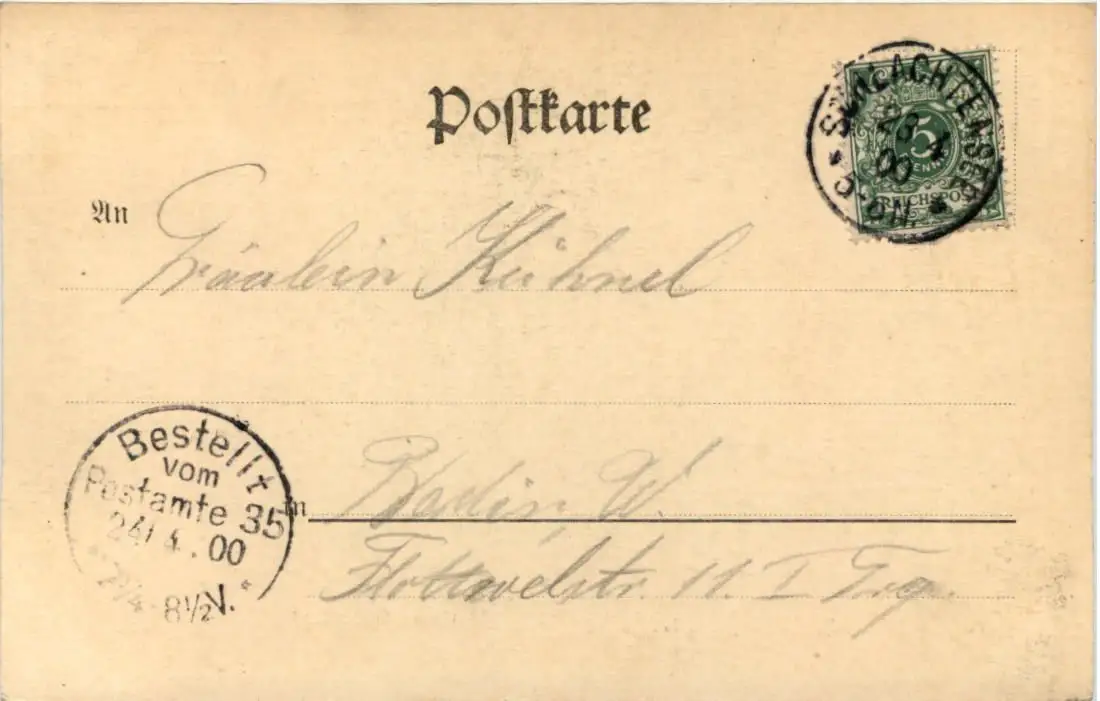 Postkarte
SCHLACHTENSEE
23 4
00
5
PFENNIG
REICHSPOST
An
Fräulein Kühnel
Bestellt
vom
Postamte 35
24/4.00
7¼-8½V.
in
Berlin, W.
Flottwelstr. 11. I Trp.